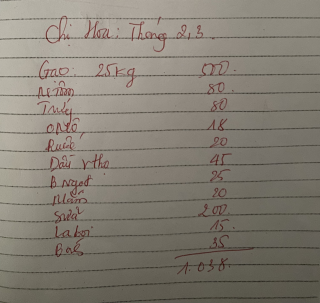 Chị Hoa: Tháng 2,3.
Gạo: 25kg 500.
80.
Trứng 80
18
Ruốc 20
Dầu 45
B Ngọt 25
Mắm 20
Sữa 200.
15.
35
1.038.